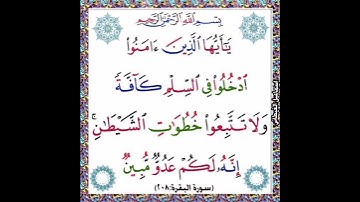 بِسْمِ ٱللَّهِ ٱلرَّحْمَٰنِ ٱلرَّحِيمِ
يَٰٓأَيُّهَا ٱلَّذِينَ ءَامَنُوا۟
ٱدْخُلُوا۟ فِى ٱلسِّلْمِ كَآفَّةً
وَلَا تَتَّبِعُوا۟ خُطُوَٰتِ ٱلشَّيْطَٰنِ ۚ
إِنَّهُۥ لَكُمْ عَدُوٌّ مُّبِينٌ
(سورة البقرة:٢٠٨)